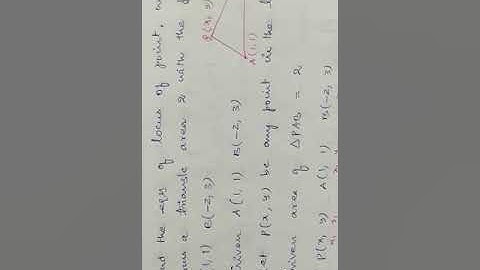 nd the eqn of locus of point,
ms a triangle area 2 with the
(1, 1) B(-2, 3)
P(x, y)
A(1, 1)
Given A(1, 1) B(-2, 3)
et P(x, y) be any point in the l
Given area of ΔPAB = 2
P(x, y) A(1, 1) B(-2, 3)